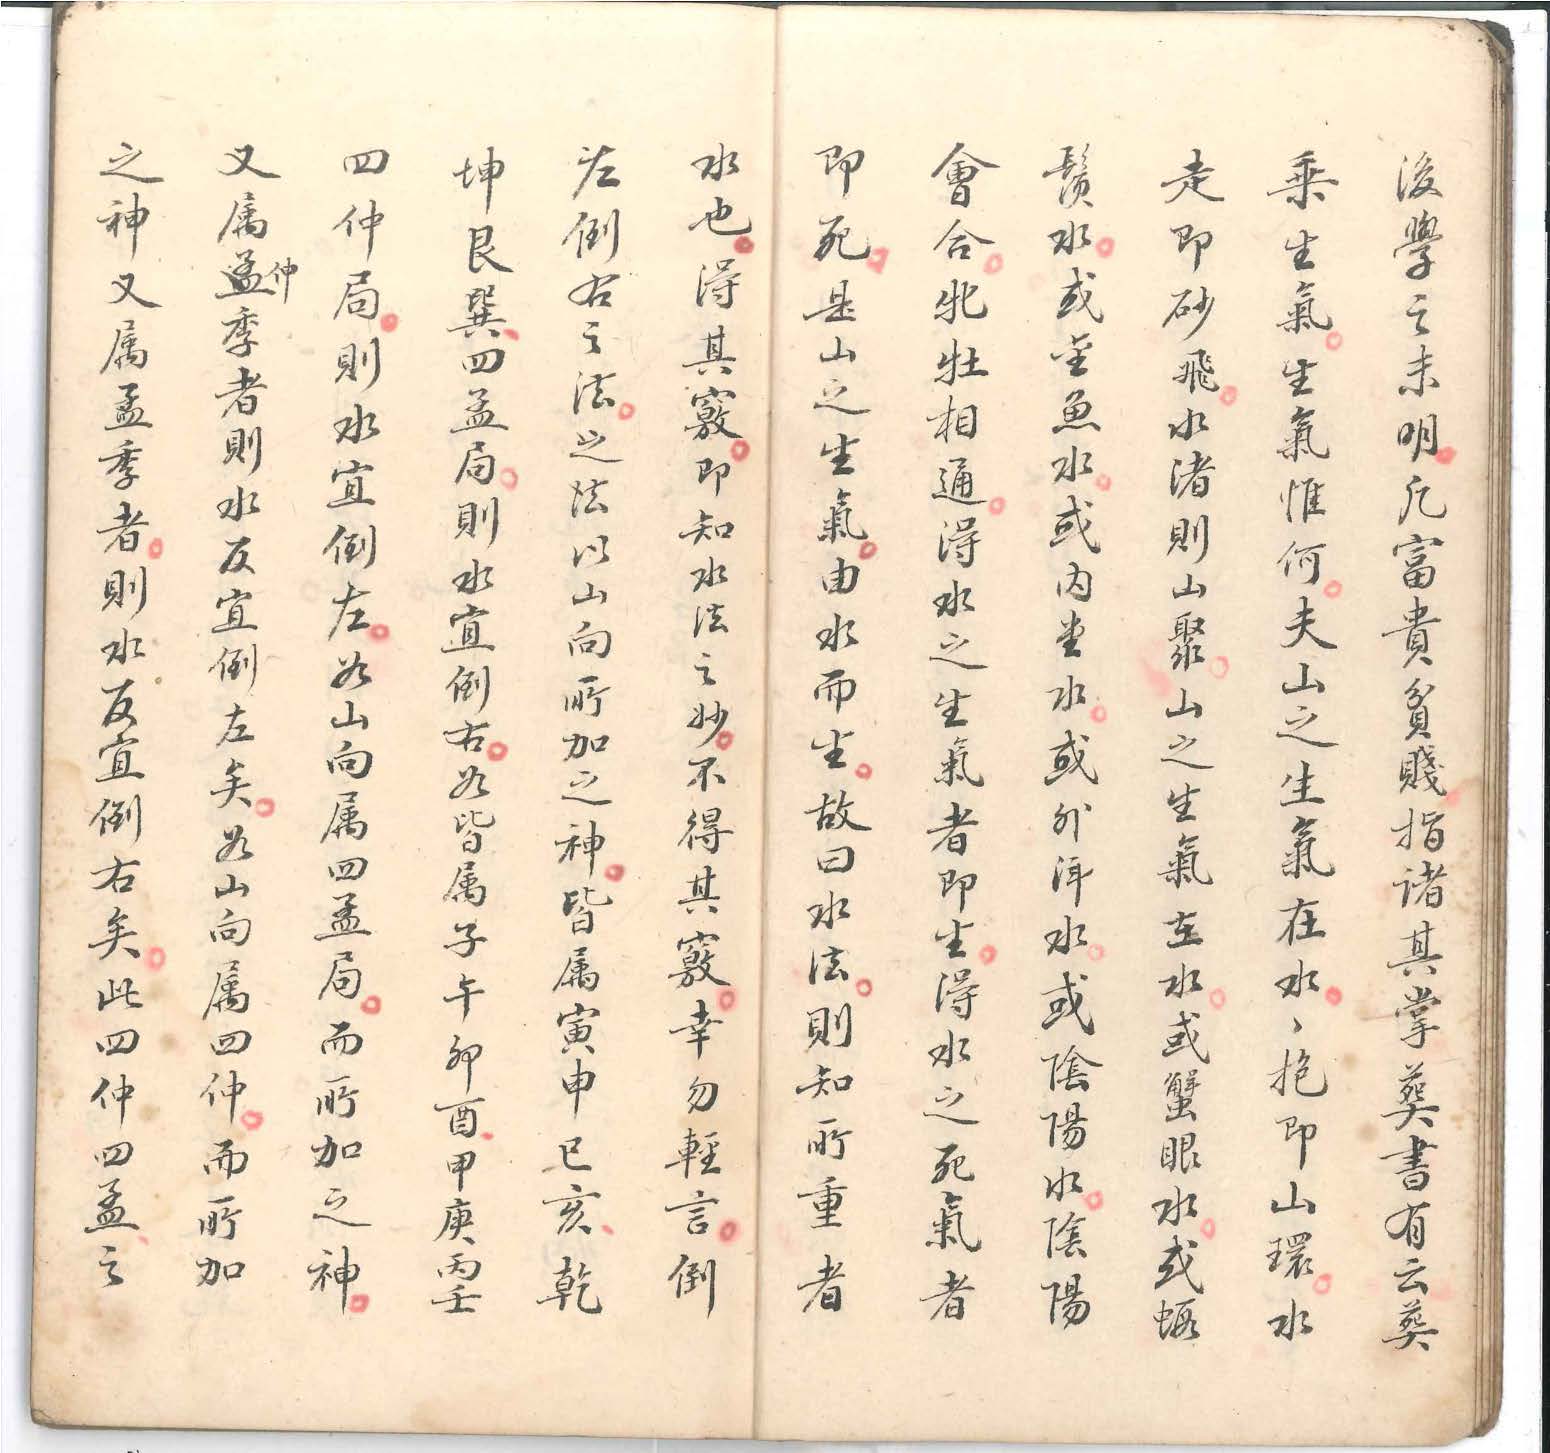 後學之未明凡富貴貧賤指諸其掌葬書有云葬
乘生氣生氣惟何夫山之生氣在水〻抱即山環水
走即砂飛水渚則山聚山之生氣在水或蟹眼水或蝦
鬚水或金魚水或內堂水或外洋水或陰陽水陰陽
會合牝牡相通得水之生氣者即生得水之死氣者
即死是山之生氣由水而生故曰水法則知所重者
水也得其竅即知水法之妙不得其竅幸勿輕言倒
左倒右之法之法以山向所加之神皆属寅申巳亥乾
坤艮巽四孟局則水宜倒右若皆属子午卯酉甲庚丙壬
四仲局則水宜倒左若山向属四孟局而所加之神
又属孟仲季者則水反宜倒左矣若山向属四仲而所加
之神又属孟季者則水反宜倒右矣此四仲四孟之